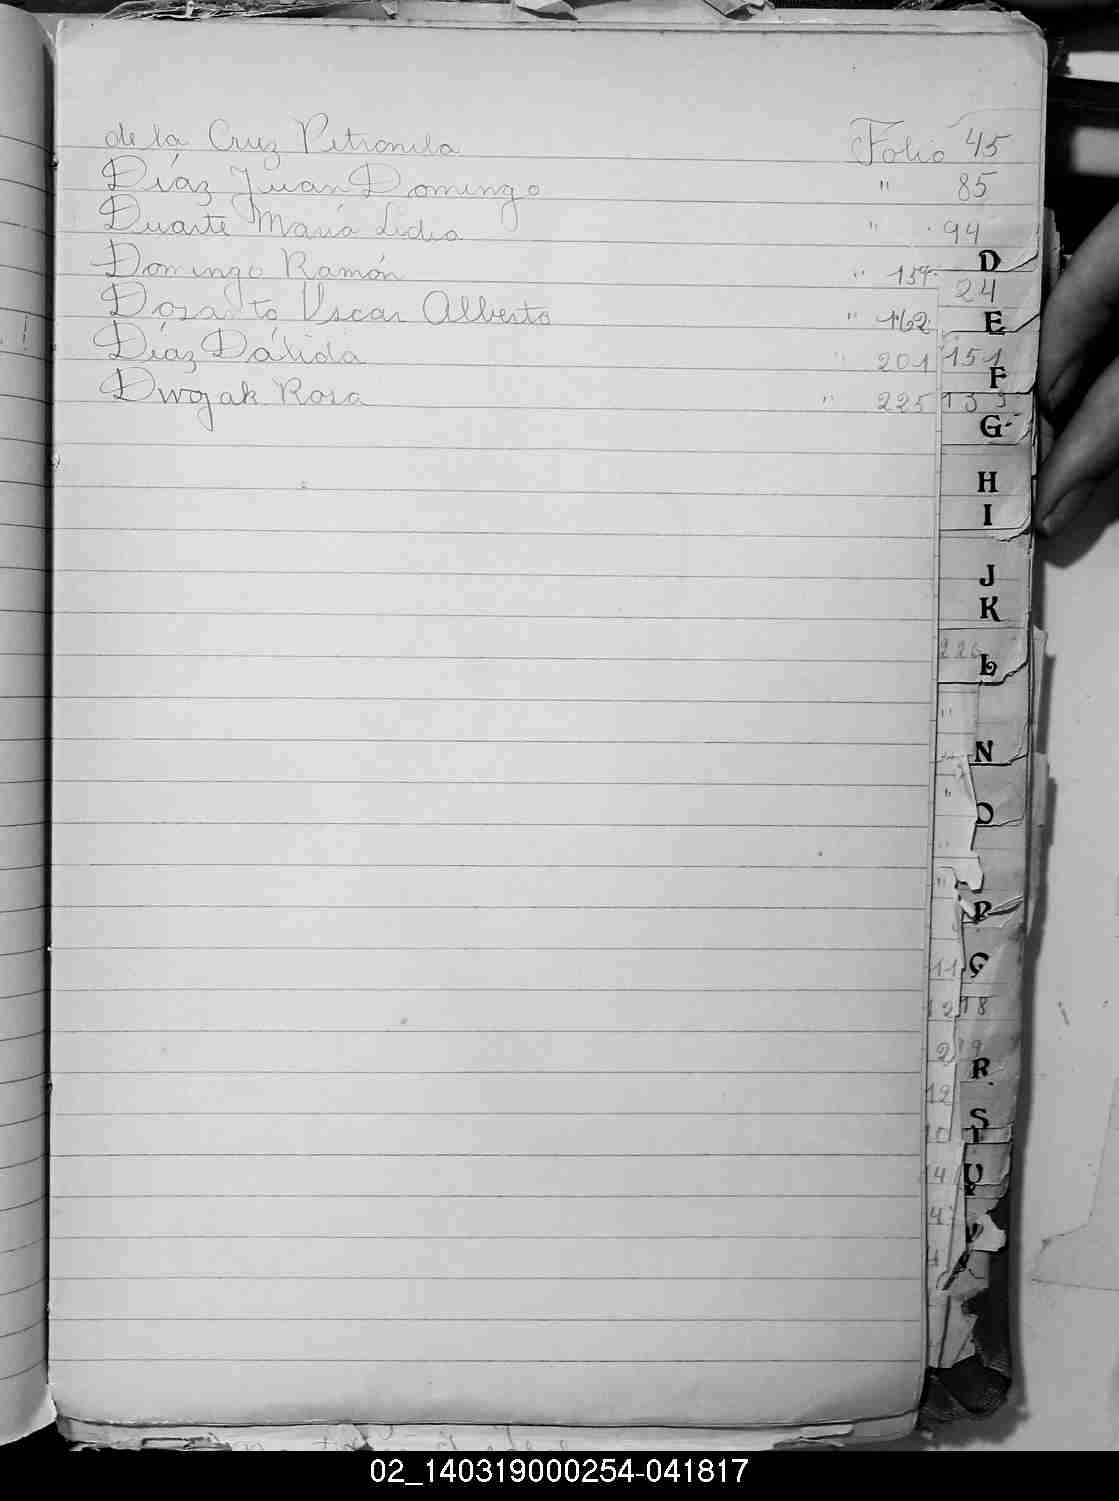 de la Cruz Petronila Folio 45
Díaz Juan Domingo " 85
Duarte María Lidia " 94
Domingo Ramón " 157
Dosanto Oscar Alberto " 162
Díaz Dálida " 201
Dwojak Rosa " 225
D
24
E
151
F
G
H
I
J
K
L
N
O
P
Q
18
R
S
T
U
V
02_140319000254-041817